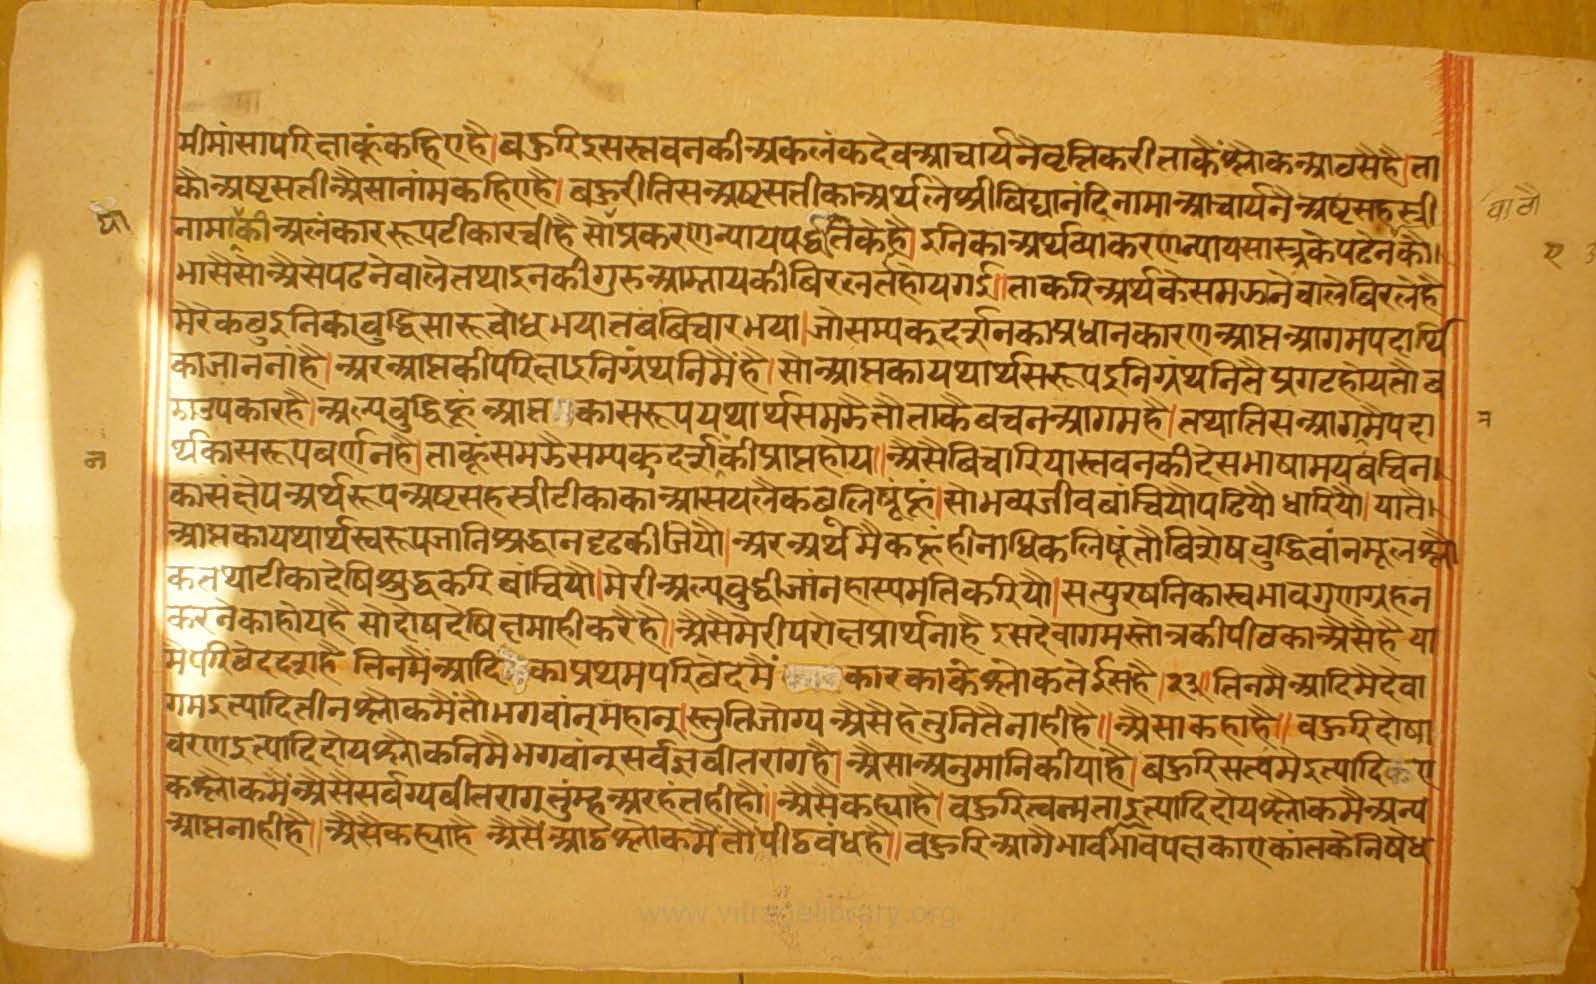 मीमांसापरिक्षाकूंकहिएहै। बहुरिइसस्तवनकीअकलंकदेवआचार्यनैवृत्तिकरीताकैश्लोकआठसैहै। ता
कौअष्टसतीअैसानांमकहिएहै। बहुरीतिसअष्टसतीकाअर्थलेश्रीविद्यानंदिनामाआचार्यनैअष्टसहस्त्री
नामांकीअलंकाररूपटीकारचीहै सोप्रकरणन्यायपर्द्धतिकेहै। इनिकाअर्थव्याकरणन्यायसास्त्रकेपढेनकौ।
भासैसोअैसेपढनेवालेतथाइनकीगुरुआम्नायकीबिरलतहोयगई। ताकरिअर्थकेसमझनेवालेबिरलेहै
मेरेकछुइनिकाबुद्धिसारूबोधभयातबबिचारभया। जोसम्यक्दर्शनकाप्रधानकारणआप्तआगमपदार्थि
काजाननांहै। अरआप्तकीपरिक्षाइनिग्रंथनिमैंहै। सोआप्तकायथार्थसरूपइनिग्रंथनितैप्रगटहोयतौब
डाउपकारहै। अल्पबुद्धिहूंआप्तकासरूपयथार्थसमझैतौताकैबचनआगमहै। तथातिसआगमैपदा
र्थकासरूपबर्णनहै। ताकूंसमझैसम्यक्दर्शकीप्राप्तहोय॥ अैसैबिचारियास्तवनकीदेसभाषामयबचनि
कासंक्षेपअर्थरूपअष्टसहस्त्रीटीकाकाआसयलैकबलिषूंहूं। सोभव्यजीवबांचियौपढियौधारियौ। यातै।
आप्तकायथार्थस्वरूपजानिश्रद्धानदृढकीजियौ। अरअर्थमैकहूंहीनाधिकलिषूंतौबिशेषबुद्धिवांनमूलश्लो
कतथाटीकादेषिशुद्धकरिबांचियौ। मेरीअल्पबुद्धीजांनहास्यमतिकरियौ। सत्पुरषनिकास्वभावगुणग्रहन
करनेकाहोयहै सोदोषदेषिक्षमाहीकरैहै॥ अैसैमेरीपरोक्षप्रार्थनाहै इसदेवागमस्तोत्रकीपीठकाअैसैहै या
मैपरिछेददशहै तिनमैंआदिकाप्रथमपरिछेदमैं कारकाकेश्लोकतेईसहै। २३॥ तिनमैआदिमैदेवा
गमइत्यादितीनश्लोकमैंतौभगवांन्महान्। स्तुतिजोग्यअैसैहेतुनितैनाहीहै॥ अैसाकहाहै॥ बहुरिदोषा
वरणइत्यादिदोयश्लोकनिमैभगवांन्सर्वज्ञवीतरागहै। अैसाअनुमानिकीयाहै। बहुरिसत्वमेइत्यादिकए
कश्लोकमैंअैसैसर्वग्यवीतरागतुंम्हअरहंतहीहौ॥ अैसैकह्याहै। बहुरित्वन्मताइत्यादिदोयश्लोकमैअन्य
आप्तनाहीहै॥ अैसैकह्याहै अैसैंआठश्लोकमैतौपीठबंधहै॥ बहुरिआगैभावभावपक्षकाएकांतकेनिषेध
www.vitragelibrary.org